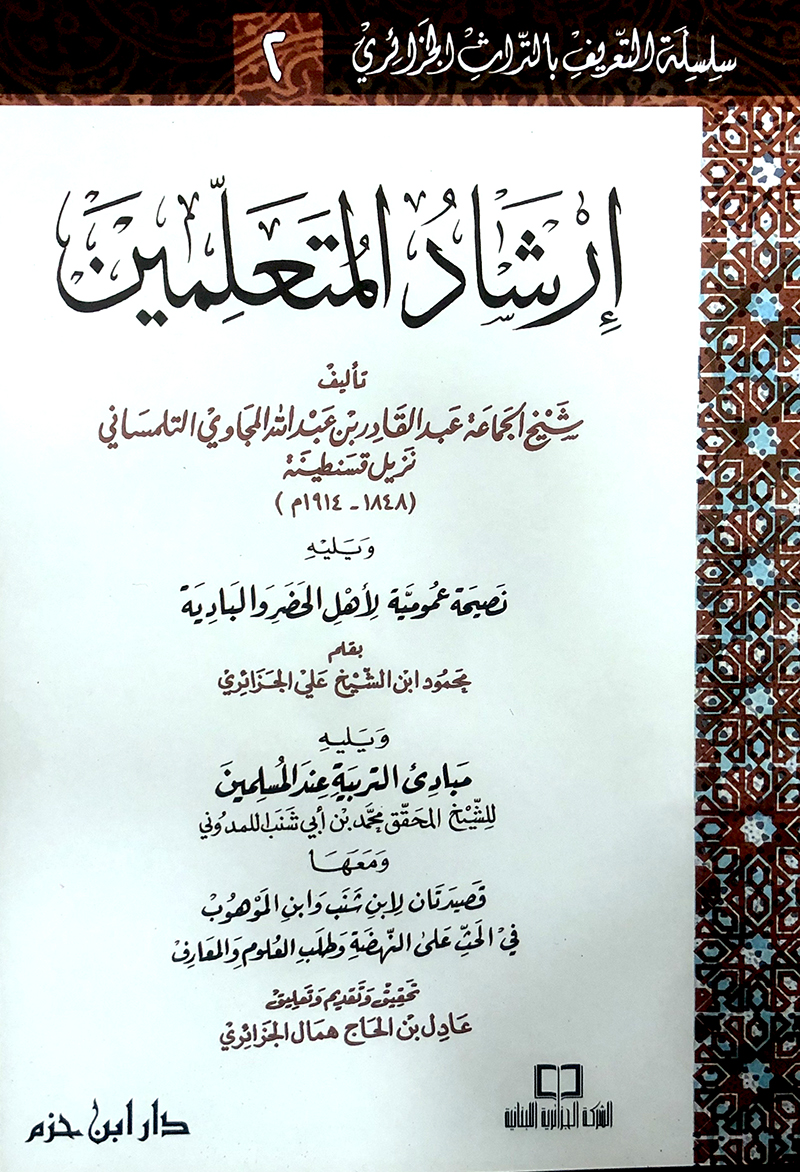 سِلسِلَة التَّعريفِ بالتّراثِ الجَزائِري
٢
إِرْشَادُ المُتَعَلِّمِينَ
تأليفْ
شَيْخ الجَمَاعَة عَبد القَادِر بْن عَبْد الله المجاويْ التلمسَاني
نَزيل قسَنطينَة
(١٨٤٨ - ١٩١٤م)
وَيَليْهِ
نَصيحَة عمُوميَّة لِأهْلِ الحَضَرِ وَالبَاديَة
بقَلم
محمُود ابن الشّيْخ عَلي الجَزَائِري
وَيَليهِ
مَبَادِئ التربيَةِ عِندَ المُسلِمينَ
للشّيْخ المحَقّق محَمَّد بْن أبي شَنَب المدوُني
وَمَعَهَا
قَصيدَتَان لِابنِ شَنَب وَابنِ المَوْهُوبْ
في الحَثّ عَلىٰ النّهضَةِ وَطَلَبِ العُلوم وَالمعَارِفْ
تحقيق وَتقديم وَتعليق
عَادِل بْن الحَاج همال الجَزائِريْ
الشركة الجزائرية اللبنانية
دار ابن حزم